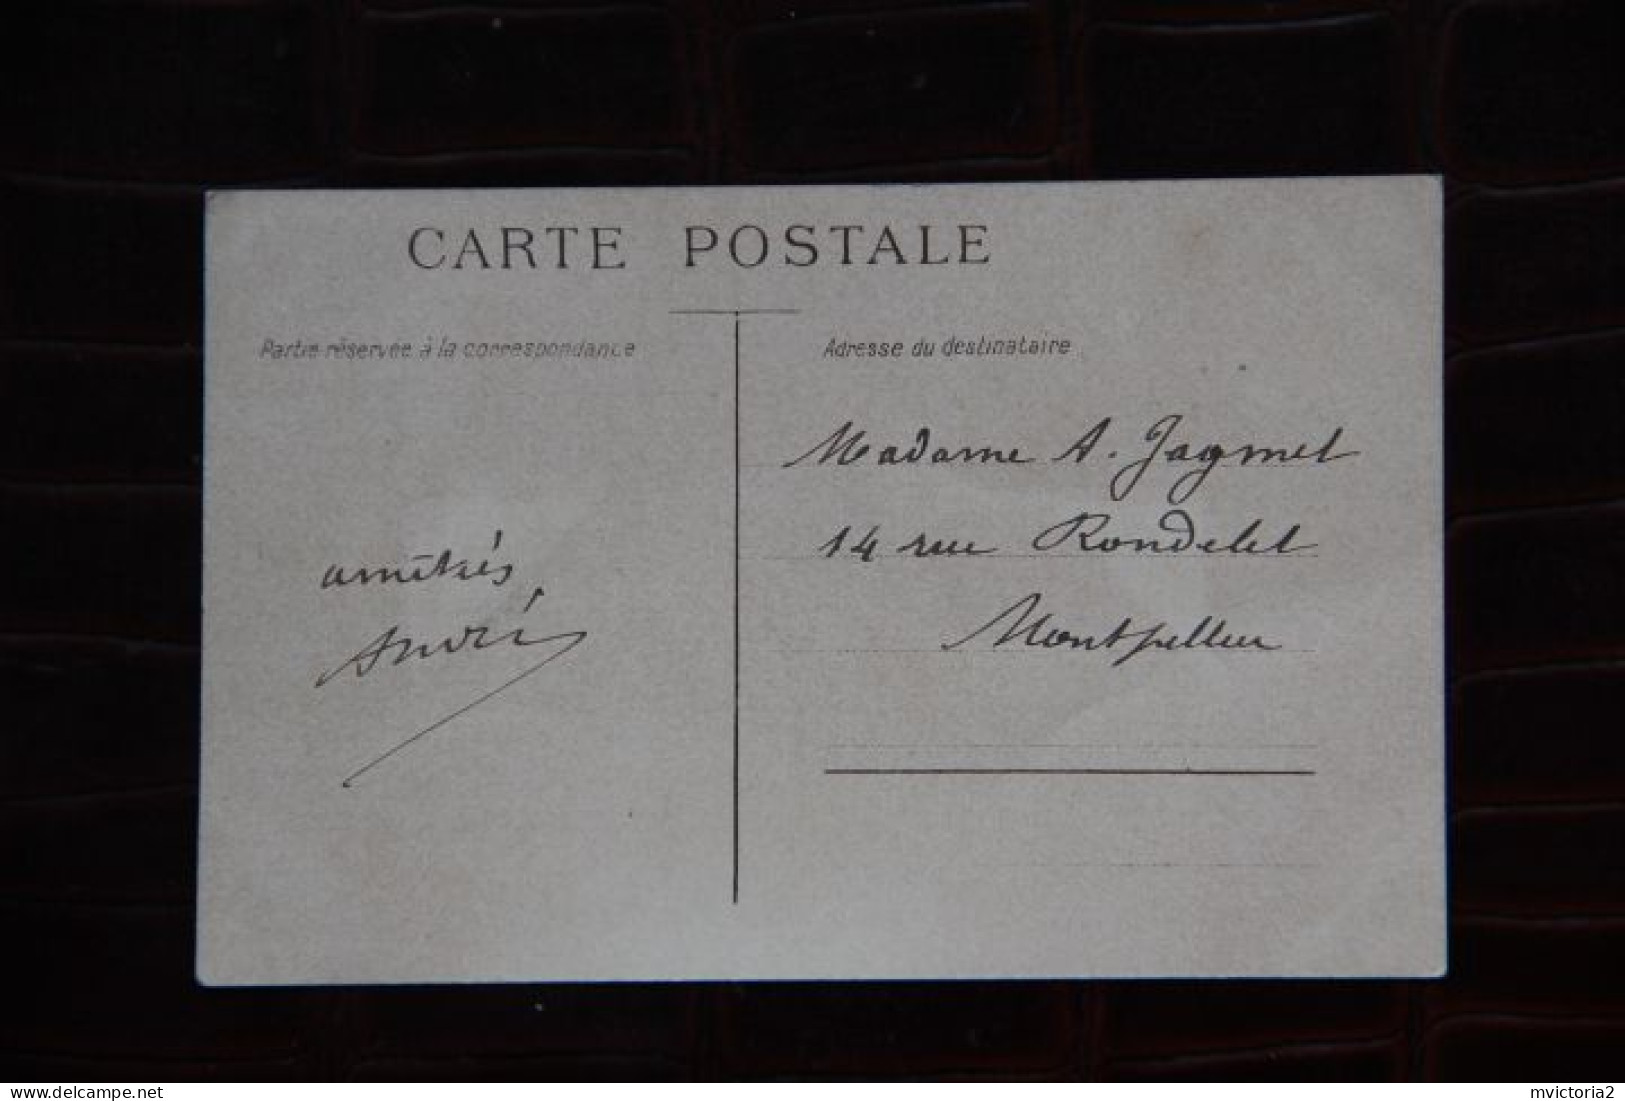 CARTE POSTALE
Partie réservée à la correspondance
amitiés
André
Adresse du destinataire
Madame A. Jagmet
14 rue Rondelet
Montpellier
delcampe.net
mvictoria2